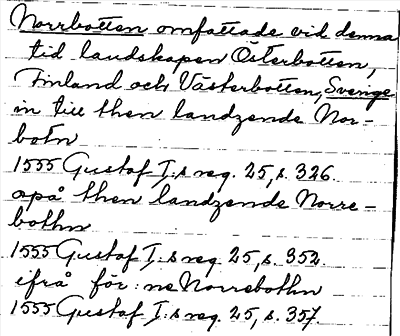 Norrbotten omfattade vid denna
tid landskapen Österbotten,
Finland och Västerbotten, Sverige
in till then landzende Nor-
botn
1555 Gustaf I:s reg. 25, s. 326.
opå then landzende Norre-
bothn
1555 Gustaf I:s reg. 25, s. 352.
ifrå för:ne Norrebothn
1555 Gustaf I:s reg. 25, s. 357.